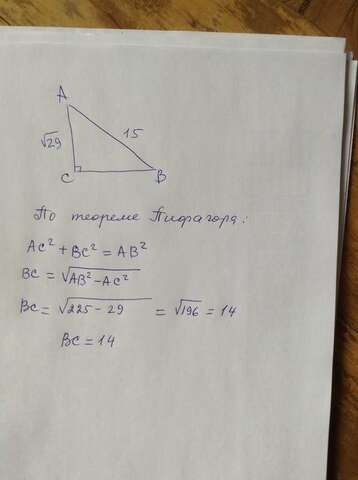 A
√29 15
C B
По теореме Пифагора:
AC² + BC² = AB²
BC = √AB² - AC²
BC = √225 - 29 = √196 = 14
BC = 14